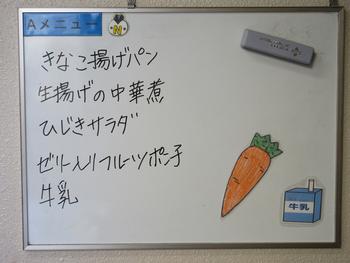 Aメニュー
N
きなこ揚げパン
生揚げの中華煮
ひじきサラダ
ゼリー入りフルーツポンチ
牛乳
牛乳